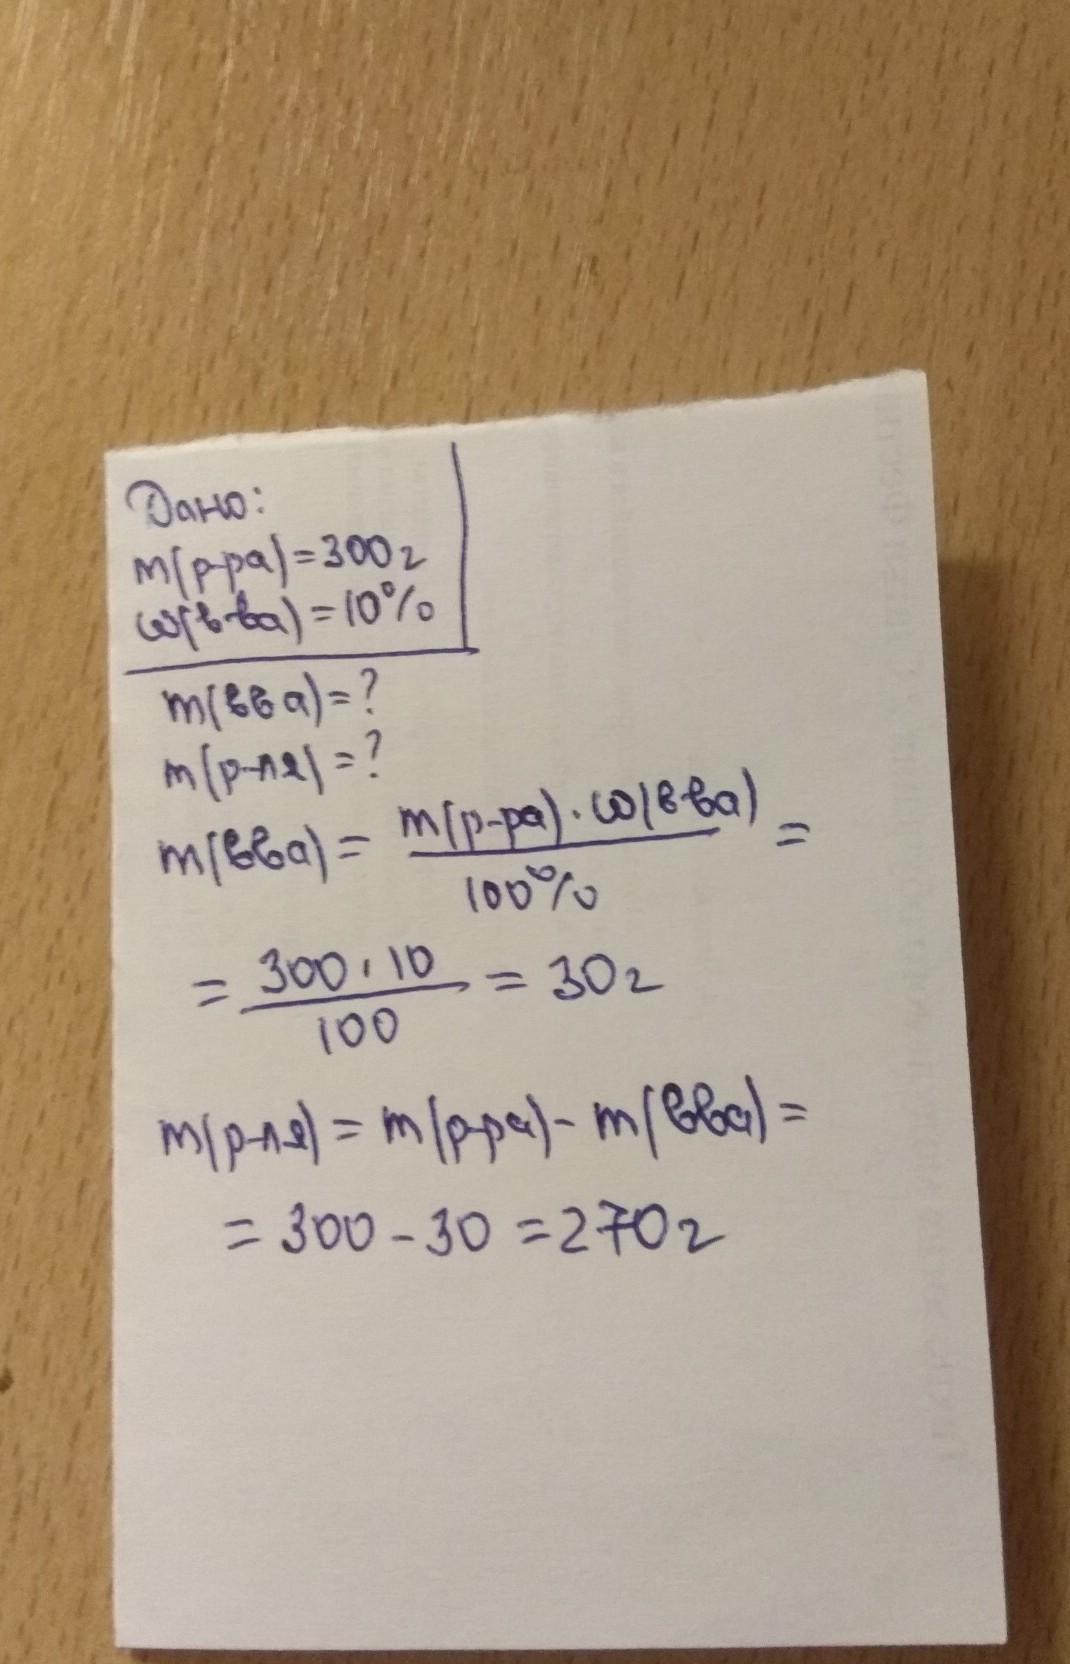 Дано:
m(р-ра)=300г
ω(в-ва)=10%
m(вва)=?
m(р-ля)=?
m(вва)= m(р-ра)·ω(вва) =
100%
= 300·10 = 30г
100
m(р-ля)= m(р-ра)- m(вва)=
= 300-30=270г